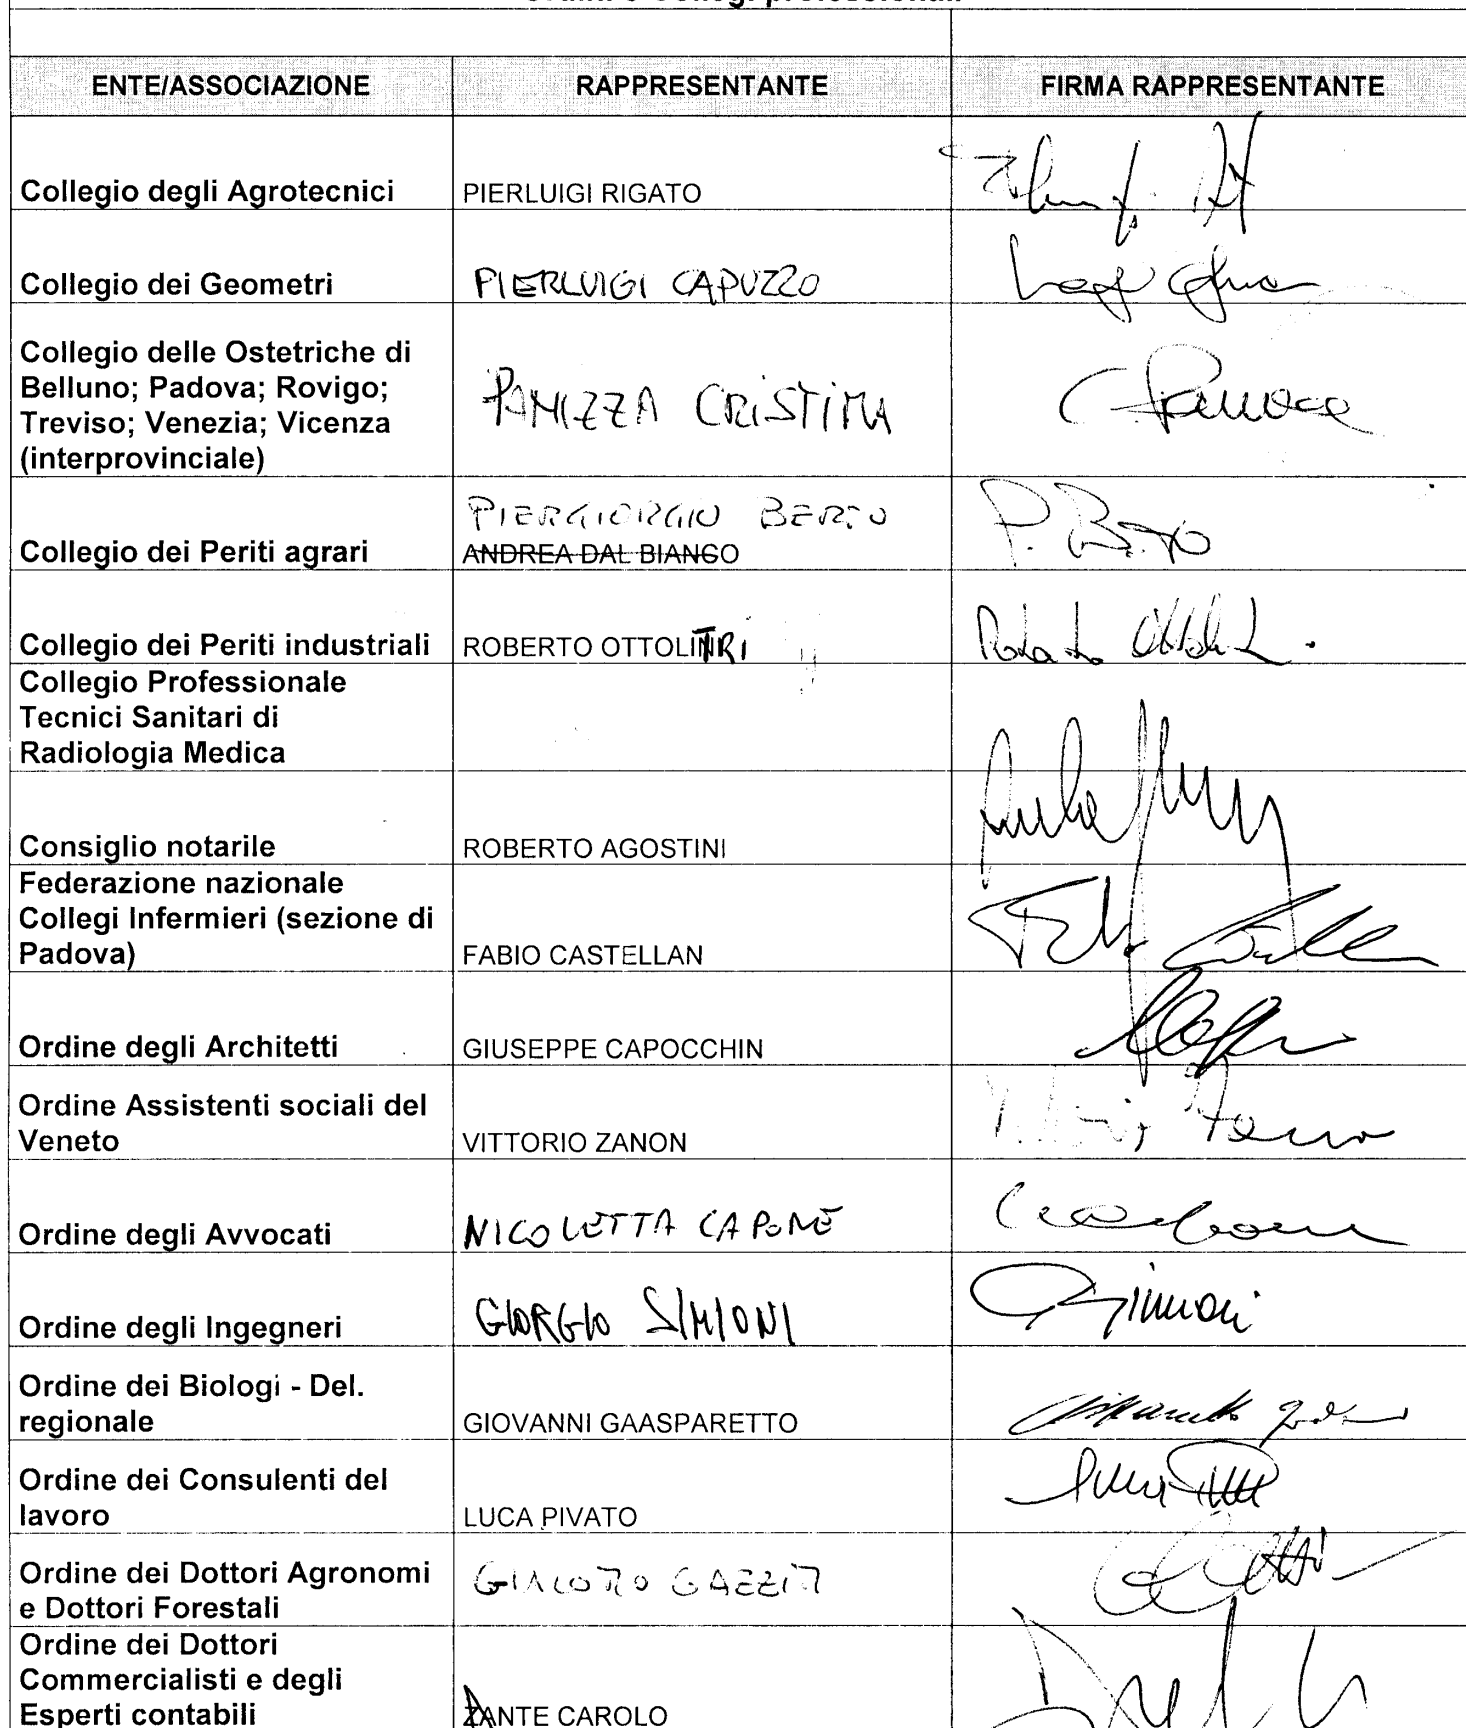 ENTE/ASSOCIAZIONE RAPPRESENTANTE FIRMA RAPPRESENTANTE
Collegio degli Agrotecnici PIERLUIGI RIGATO
Collegio dei Geometri PIERLUIGI CAPUZZO
Collegio delle Ostetriche di
Belluno; Padova; Rovigo;
Treviso; Venezia; Vicenza
(interprovinciale)
PANIZZA CRISTINA
PIERGIORGIO BERTO
Collegio dei Periti agrari ANDREA DAL BIANCO
P. Berto
Collegio dei Periti industriali ROBERTO
Collegio Professionale
Tecnici Sanitari di
Radiologia Medica
Consiglio notarile ROBERTO AGOSTINI
Federazione nazionale
Collegi Infermieri (sezione di
Padova) FABIO CASTELLAN
Ordine degli Architetti GIUSEPPE CAPOCCHIN
Ordine Assistenti sociali del
Veneto VITTORIO ZANON
Ordine degli Avvocati NICOLETTA CAPONE
Ordine degli Ingegneri GIORGIO SIMIONI
Ordine dei Biologi - Del.
regionale GIOVANNI GAASPARETTO
Ordine dei Consulenti del
lavoro LUCA PIVATO
Ordine dei Dottori Agronomi
e Dottori Forestali
GIACOMO
Ordine dei Dottori
Commercialisti e degli
Esperti contabili DANTE CAROLO